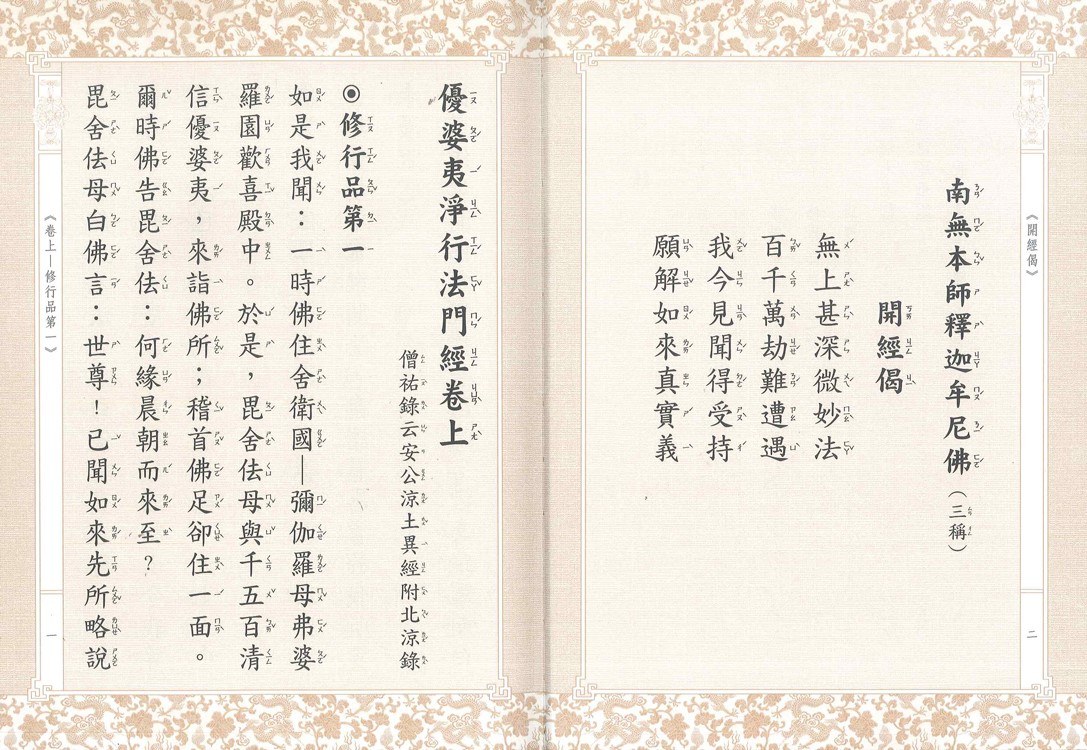 《開經偈》
二
南無本師釋迦牟尼佛（三稱）
開經偈
無上甚深微妙法
百千萬劫難遭遇
我今見聞得受持
願解如來真實義
優婆夷淨行法門經卷上
僧祐錄云安公涼土異經附北涼錄
◉修行品第一
如是我聞：一時佛住舍衛國—彌伽羅母弗婆
羅園歡喜殿中。於是，毘舍佉母與千五百清
信優婆夷，來詣佛所；稽首佛足卻住一面。
爾時佛告毘舍佉：何緣晨朝而來至？
毘舍佉母白佛言：世尊！已聞如來先所略說
《卷上—修行品第一》
一